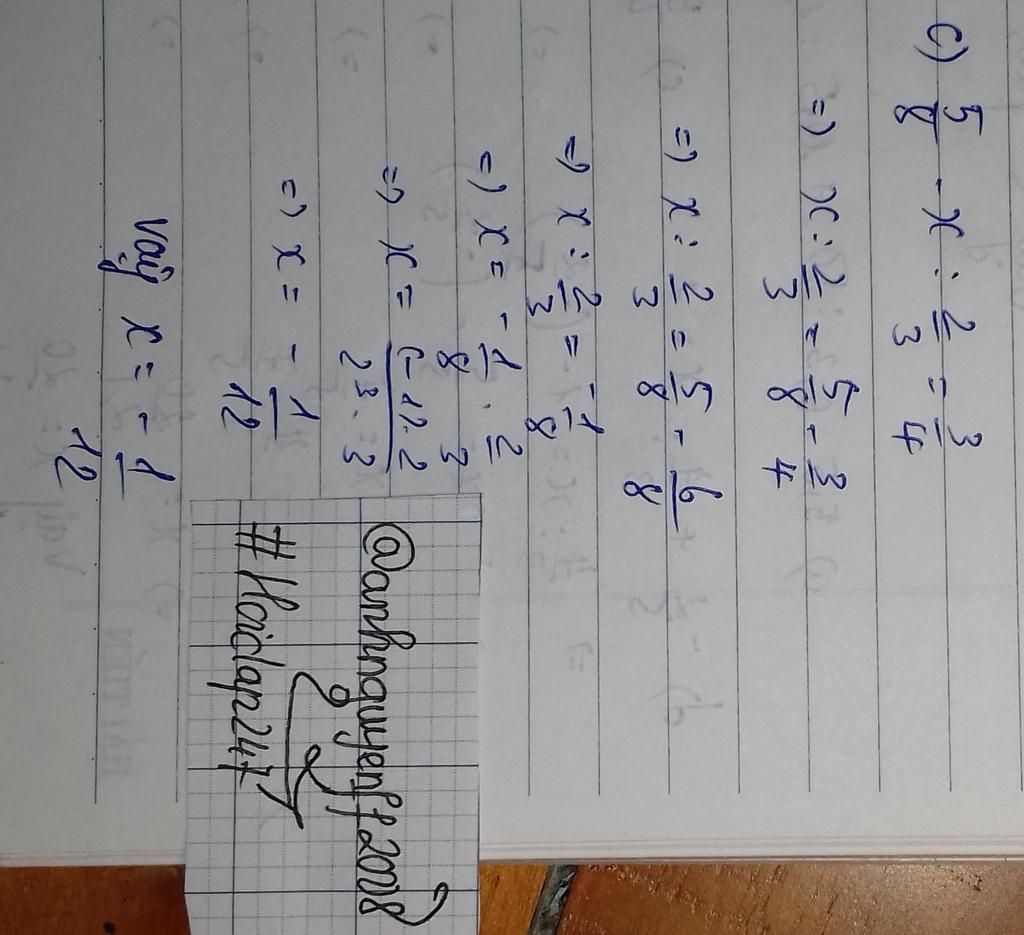 c) 5/8 - x : 2/3 = 3/4
=> x : 2/3 = 5/8 - 3/4
=> x : 2/3 = 5/8 - 6/8
=> x : 2/3 = -1/8
=> x = -1/8 . 2/3
=> x = (-1).2/2³.3
=> x = -1/12
Vậy x = -1/12
@anhnguyenff2008
#Hoidap247